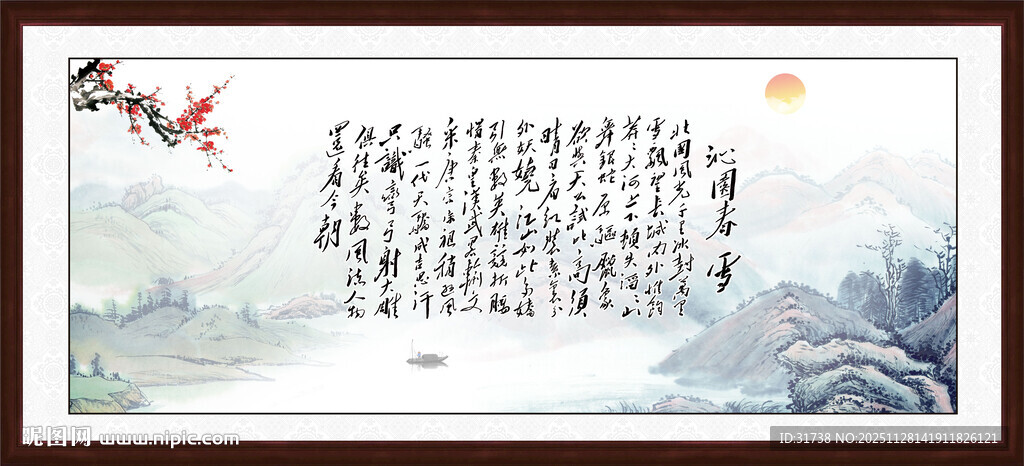 沁園春 雪
北國風光千里冰封萬里
雪飄望長城内外惟餘
莽々大河上下頓失滔々山
舞銀蛇原驅臘象
欲與天公試比高須
晴日看紅裝素裹分
外妖嬈江山如此多嬌
引無數英雄競折腰
惜秦皇漢武略輸文
采唐宗宋祖稍遜風
騷一代天驕成吉思汗
只識彎弓射大雕
俱往矣數風流人物
還看今朝
昵图网 www.nipic.com
ID:31738 NO:20251128141911826121